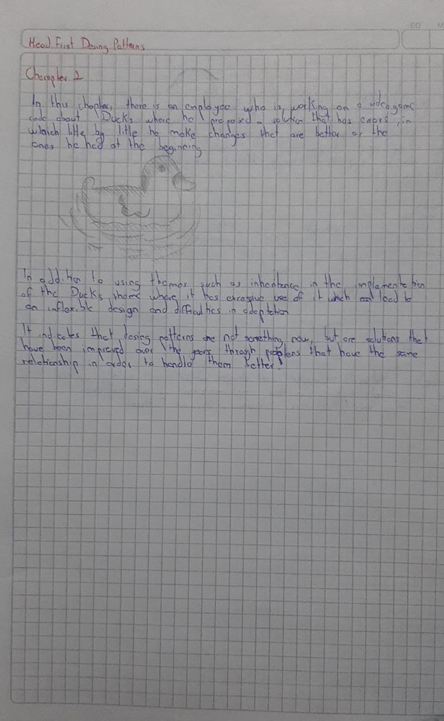 Head First Desing Patterns
Chapter 1
In this chapter, there is an employee who is working on a videogame
code about Ducks where he proposed a solution that has errors, in
which little by little he make changes that are better or the
ones he had at the beginning
In addition to using themes such as inheritance in the implementation
of the Ducks, shows where it has excessive use of it which can lead to
an inflexible design and difficulties in adaptation
It indicates that desing patterns are not something new, but are solutions that
have been improved over the years through problems that have the same
relationship in order to handle them better